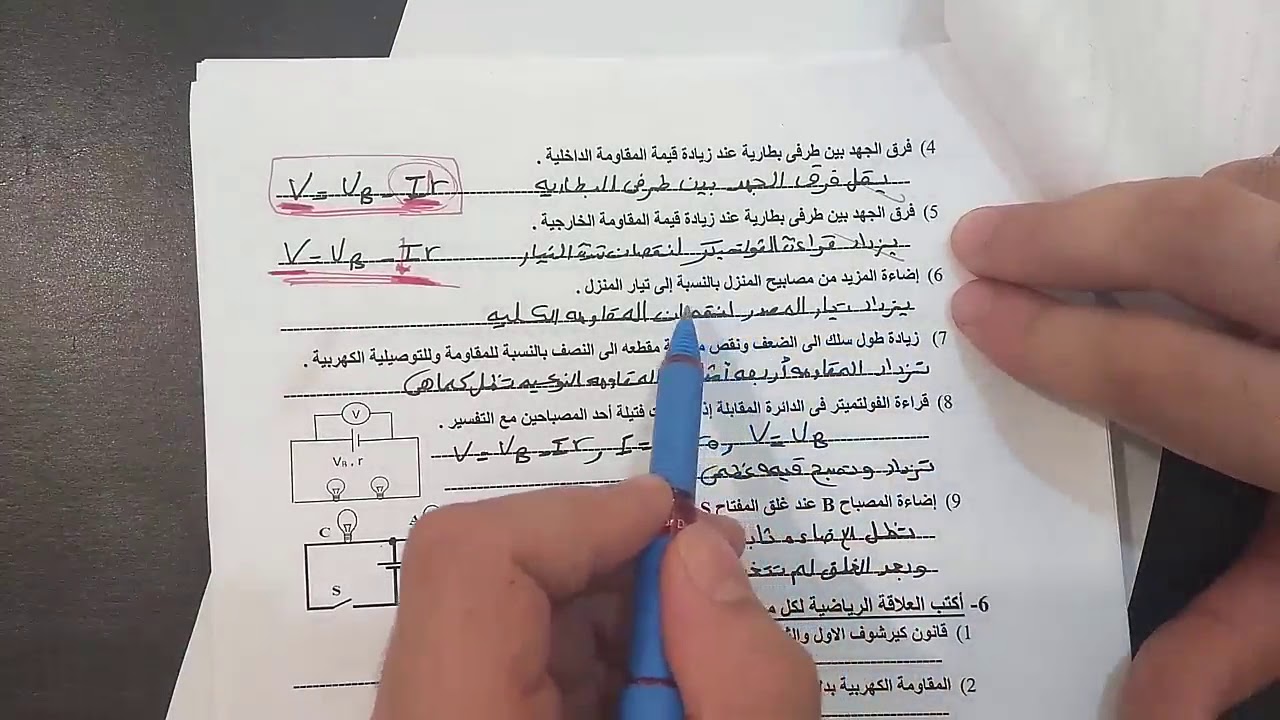 4) فرق الجهد بين طرفى بطارية عند زيادة قيمة المقاومة الداخلية .
يقل فرق الجهد بين طرفى البطارية V = VB - Ir
5) فرق الجهد بين طرفى بطارية عند زيادة قيمة المقاومة الخارجية .
يزداد قراءة الفولتميتر لنقصان شدة التيار V = VB - Ir
6) إضاءة المزيد من مصابيح المنزل بالنسبة إلى تيار المنزل .
يزداد تيار المصدر لنقصان المقاومه الكليه
7) زيادة طول سلك الى الضعف ونقص مقطعه الى النصف بالنسبة للمقاومة وللتوصيلية الكهربية .
تزداد المقاومه أربعه المقاومه النوعيه تظل كما هى
8) قراءة الفولتميتر فى الدائرة المقابلة فتيلة أحد المصباحين مع التفسير .
V = VB - Ir , I = , V = VB
تزداد وتصبح قيمه عظمى
V
VB , r
9) إضاءة المصباح B عند غلق المفتاح S
تظل الإضاءه
وبعد الغلق لم
C
S
6- أكتب العلاقة الرياضية لكل
1) قانون كيرشوف الاول
2) المقاومة الكهربية